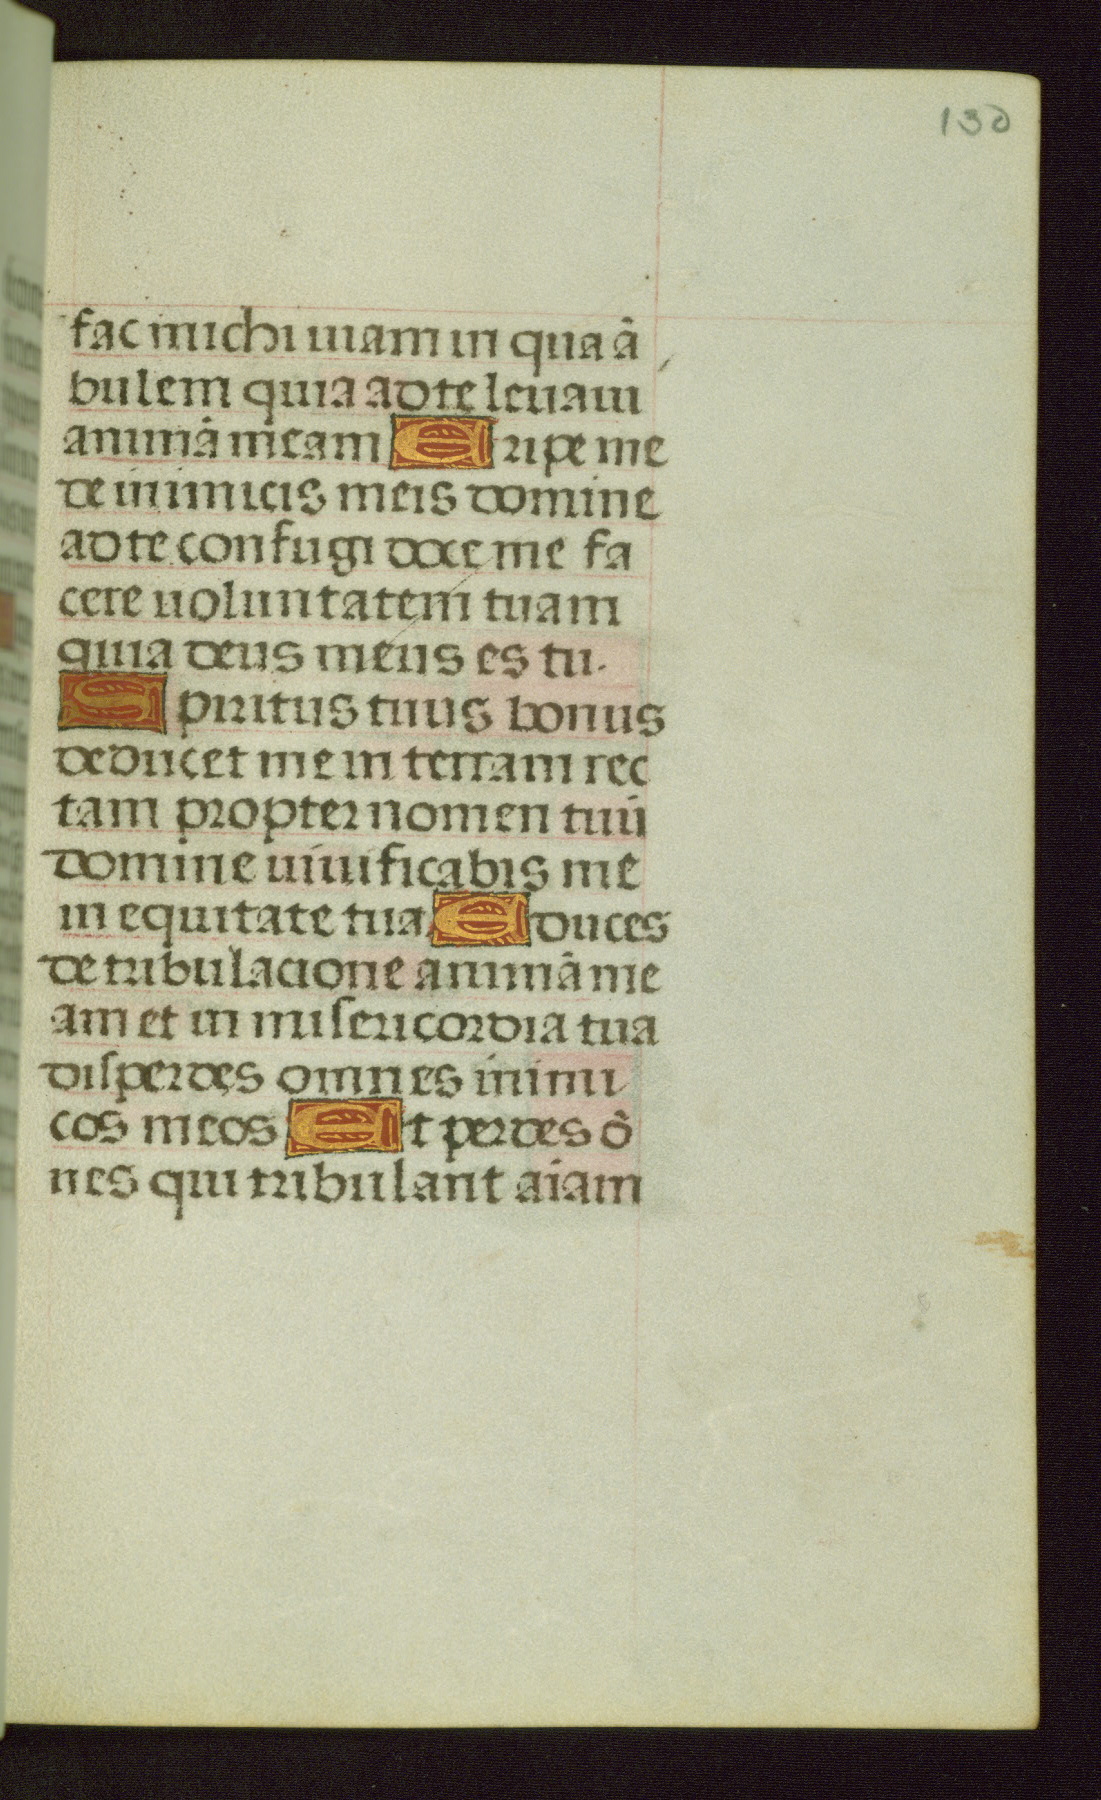 130
fac michi uiam in qua ā
bulem quia ad te leuaui
animā meam Eripe me
de inimicis meis domine
ad te confugi doce me fa
cere uoluntatem tuam
quia deus meus es tu.
Spiritus tuus bonus
deducet me in terram rec
tam propter nomen tuū
domine uiuificabis me
in equitate tua Educes
de tribulacione animā me
am et in misericordia tua
disperdes omnes inimi
cos meos Et perdes ō
nes qui tribulant aiam